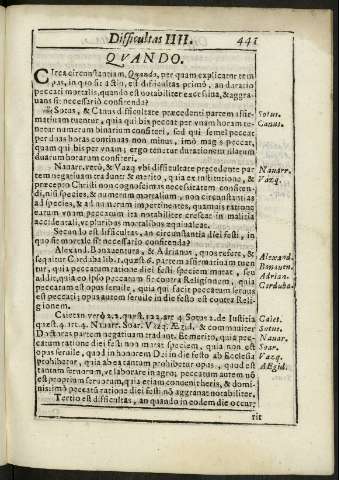 Difficultas IIII. 441
QVANDO.
CIrca circunstantiam, Quando, per quam explicatur tem
pus, in quo sit actio, est difficultas primò, an duratio
peccati mortalis, quando est notabiliter excessiua, & aggra
uans sit necessariò confitenda?
Sotus, & Canus difficultate præcedenti partem affir-
matiuam tuentur, quia qui bis peccat per vnam horam te-
netur numerum binarium confiteri, sed qui semel peccat
per duas horas continuas non minus, imò magis peccat,
quam qui bis per vnam; ergo tenetur durationem illarum
duarum horarum confiteri.
Sotus.
Canus.
Nauarr. verò, & Vazq. vbi difficultate præcedente par
tem negatiuam tradunt & meritò, quia ex institutione, &
præcepto Christi non cognoscimus necessitatem confiten-
di, nisi species, & numerum mortalium, non circunstantias
ad species, & ad numerum impertinentes, quamuis ratione
earum vnam peccatum ita notabiliter crescat in malitia
accidentali, vt pluribus mortalibus æquiualeat.
Nauarr.
Vazq.
Secunlo est difficultas, an circunstantia diei festi, in
quo fit mortale sit necessariò confitenda?
Alexand. Bonauentura, & Adrianus, quos refert, &
sequitur Corduba lib. 1. quæst. 6. partem affirmatiuam tuen
tur, quia peccatum ratione diei festi speciem mutat, seu
addit, quia eo ipso peccatum fit contra Religionem, quia
peccatum est opus seruile, quia qui facit peccatum seruus
est peccati; opus autem seruile in die festo est contra Reli-
gionem.
Alexand.
Bonauen.
Adrian.
Corduba.
Caietan. verò 2. 2. quæst. 122. art. 4. Sotus 2. de Iustitia
quæst. 4. art. 4. Nauarr. Soar. Vazq. Ægid. & communiter
Doctores partem negatiuam tradunt. Et meritò, quia pec-
catum ratione diei festi non mutat speciem, quia non est
opus seruile, quod in honorem Dei in die festo ab Ecclesia
prohibetur, quia ab ea tantum prohibetur opus, quod est
tantum seruorum, vt laborare in agro; peccatum autem nõ
est proprium seruorum, quia etiam conuenit heris, & domi-
nis: imò peccatũ ratione diei festi nõ aggrauat notabiliter.
Caiet.
Sotus.
Nauar.
Soar.
Vazq.
AEgid.
Tertio est difficultas, an quando in eodem die occur-
rit